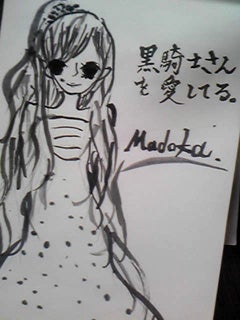 黒騎士さん
を愛してる。
Madoka.